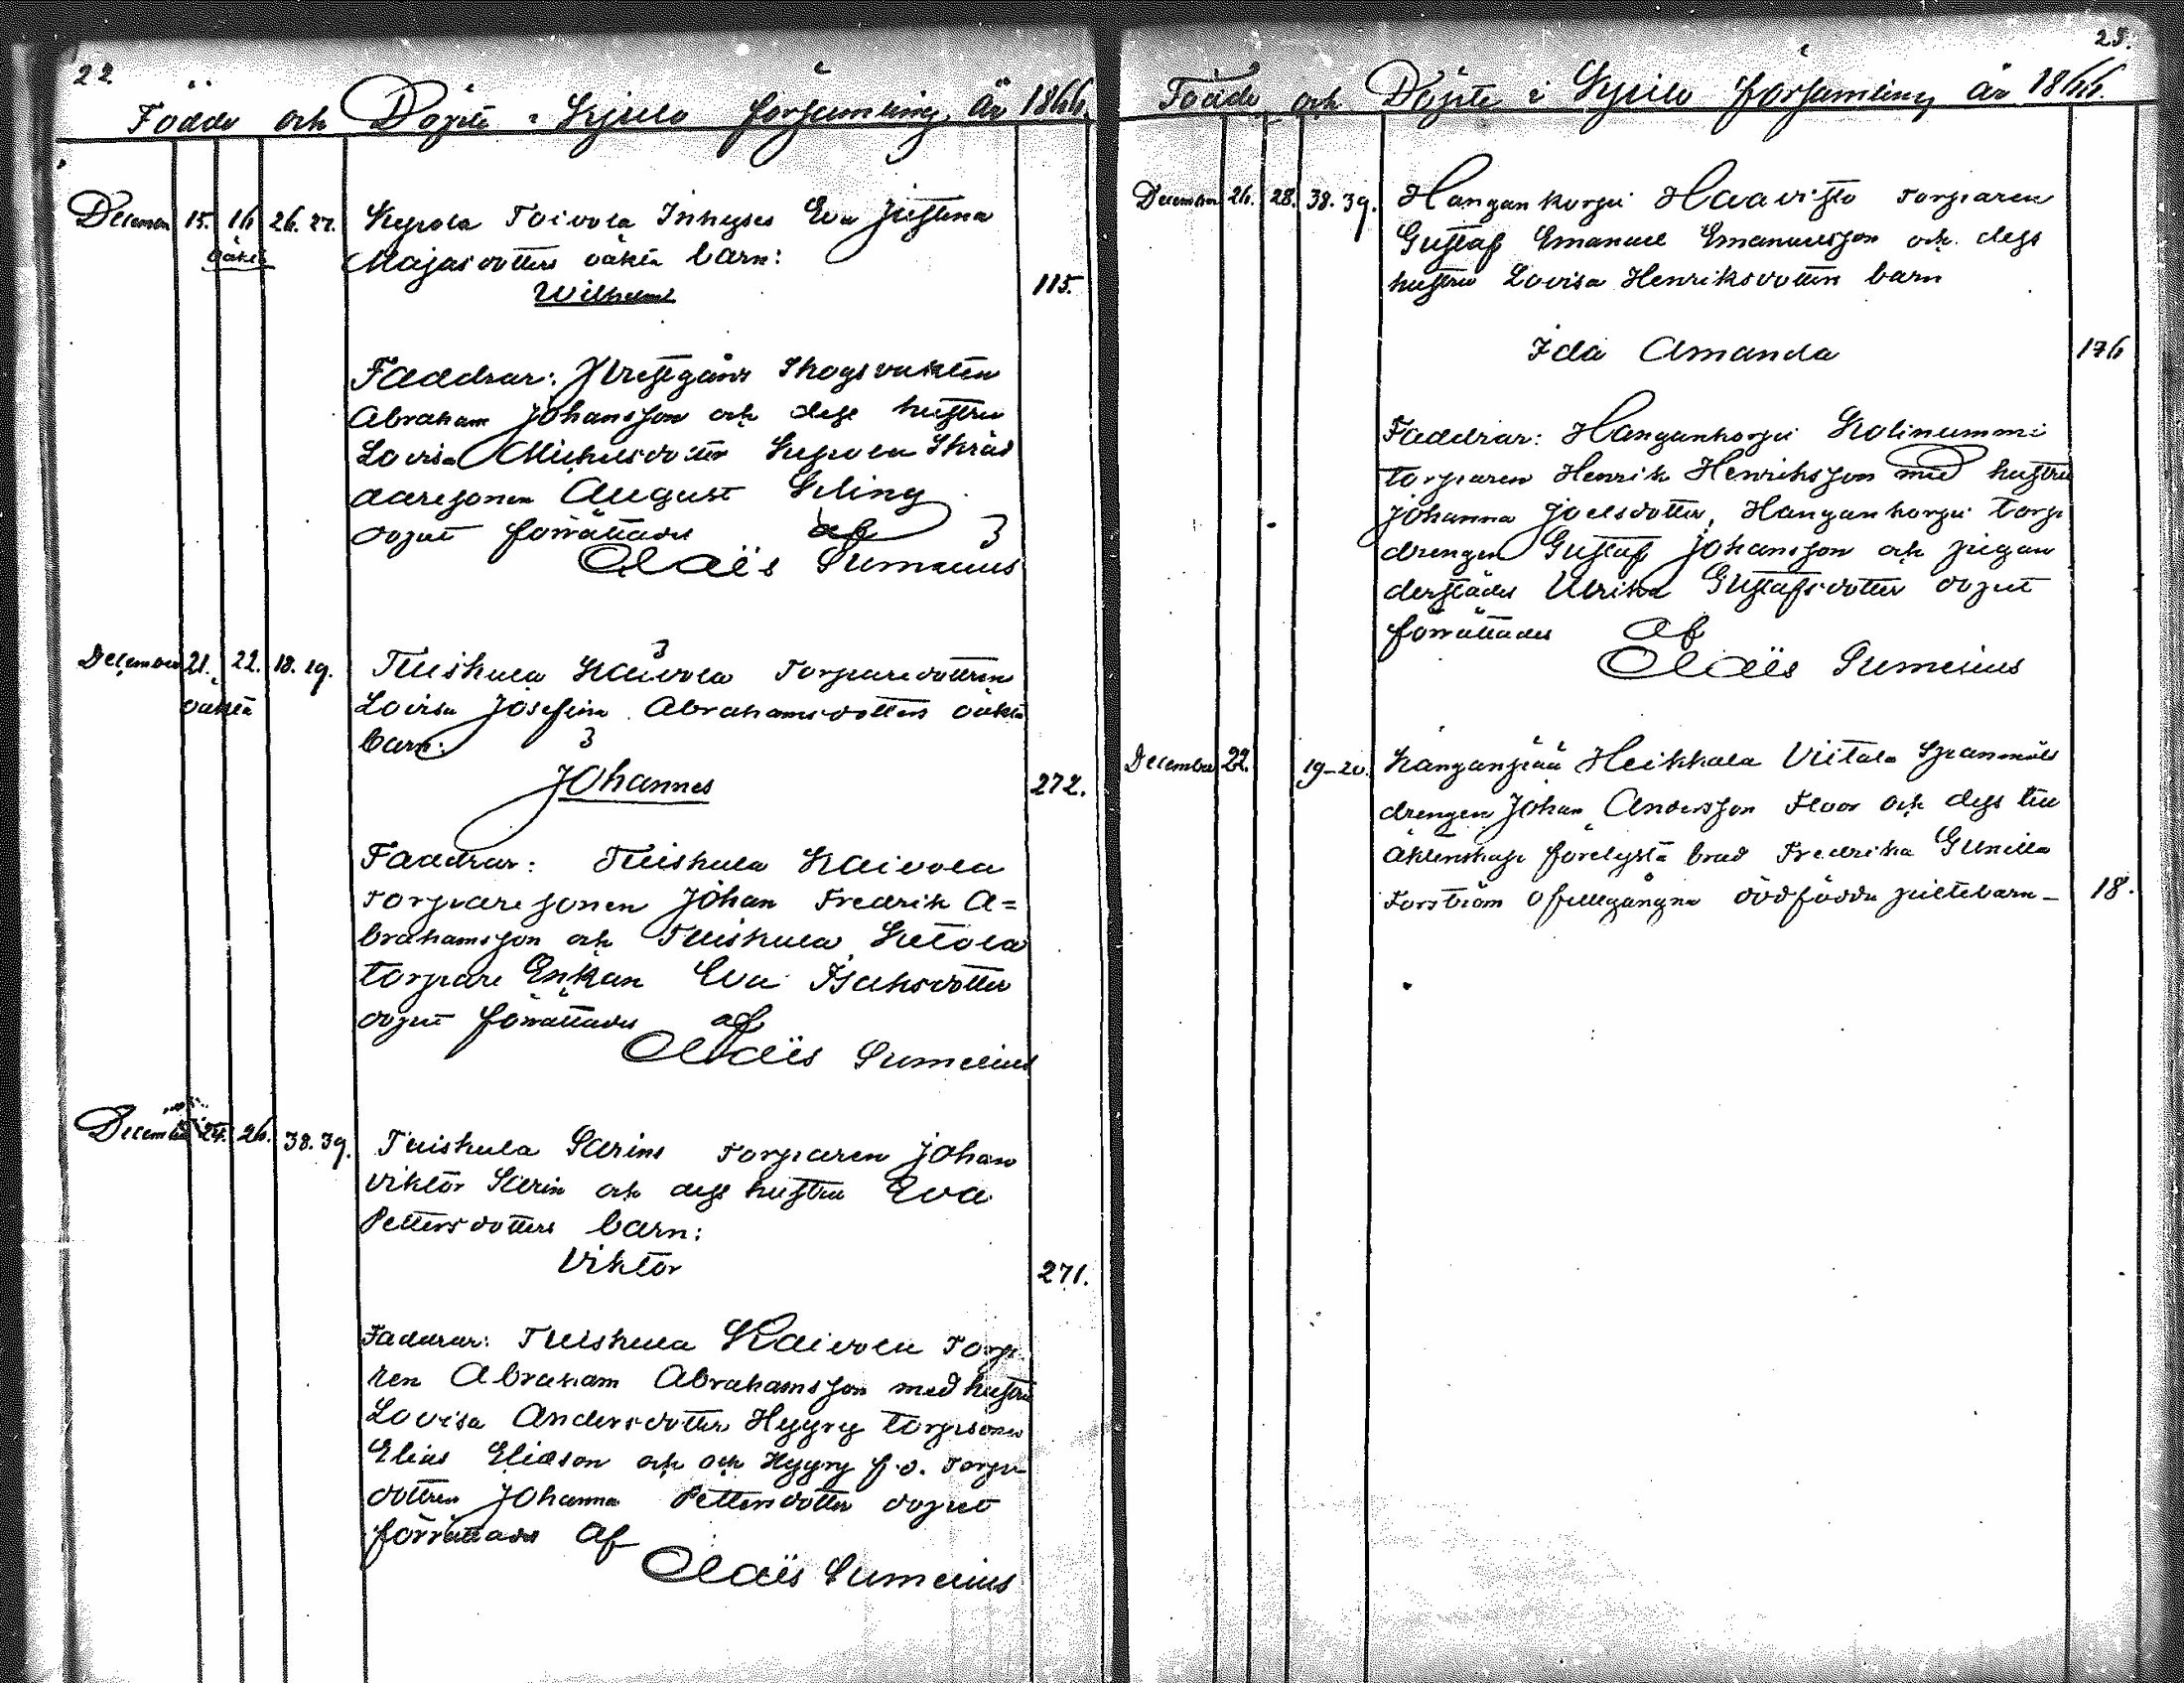 22
Födde och Döpte i Kjulo församling År 1866.
December 15. 16 26. 27. Kepola Toivola Inhyses Eva Justina
oäkta Majasdotters oäkta barn:
Wilhelm 115.
Faddrar: Prestgårds Skogsvakten
Abraham Johansson och dess hustru
Lovisa Michelsdotter Kepola Skräd
daresonen August Seling
döpet förrättades af
Claës Sumelius
December 21. 22. 18. 19. Tuiskula Kaivola Torparedottren
oäkta Lovisa Josefina Abrahamsdotters oäkta
barn:
Johannes 272.
Faddrar: Tuiskula Kaivola
Torparesonen Johan Fredrik A=
brahamsson och Tuiskula Ketola
torpare Enkan Eva Isaksdotter
döpet förrättades af
Claës Sumelius
December 24. 26. 38. 39. Tuiskula Sarins Torparen Johan
Viktor Sarin och dess hustru Eva
Pettersdotters barn:
Viktor 271.
Faddrar: Tuiskula Kaivola Torpa
ren Abraham Abrahamsson med hustru
Lovisa Andersdotter Hyyry torpsonen
Elias Eliason och och Hyyry f.d. Torpa
dottren Johanna Pettersdotter döpet
förrättades af
Claës Sumelius
25.
Födde och Döpte i Kjulo församling år 1866.
December 26. 28. 38. 39. Hangankorpi Haavisto Torparen
Gustaf Emanuel Emanuelsson och dess
hustru Lovisa Henriksdotters barn
Ida Amanda 176
Faddrar: Hangankorpi Kolinummi
torparen Henrik Henriksson med hustru
Johanna Joelsdotter, Hangankorpi torp
drengen Gustaf Johansson och pigan
derstädes Ulrika Gustafsdotter döpet
förrättades af
Claës Sumelius
December 22. 19-20. Kanganpää Heikkala Viitala Spanmåls
drengen Johan Andersson Floor och dess till
äktenskap förelysta brud Fredrika Gunilla
Forström ofullgångna dödfödda piltebarn- 18.